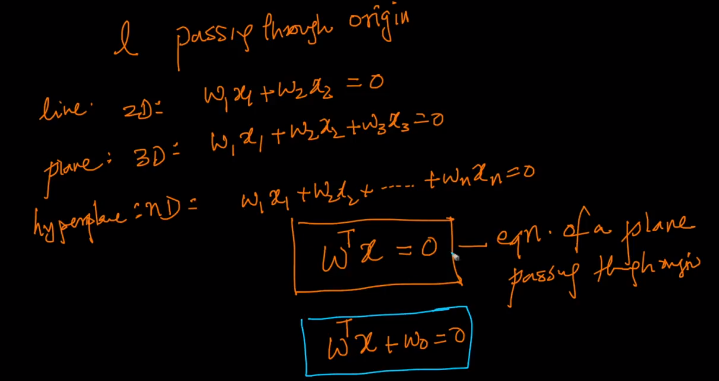 l passig through origin
line: 2D: w₁x₁ + w₂x₂ = 0
plane: 3D: w₁x₁ + w₂x₂ + w₃x₃ = 0
hyperplane: nD: w₁x₁ + w₂x₂ + ..... + wₙxₙ = 0
wᵀx = 0 — eqn. of a plane
passing through origin
wᵀx + w₀ = 0